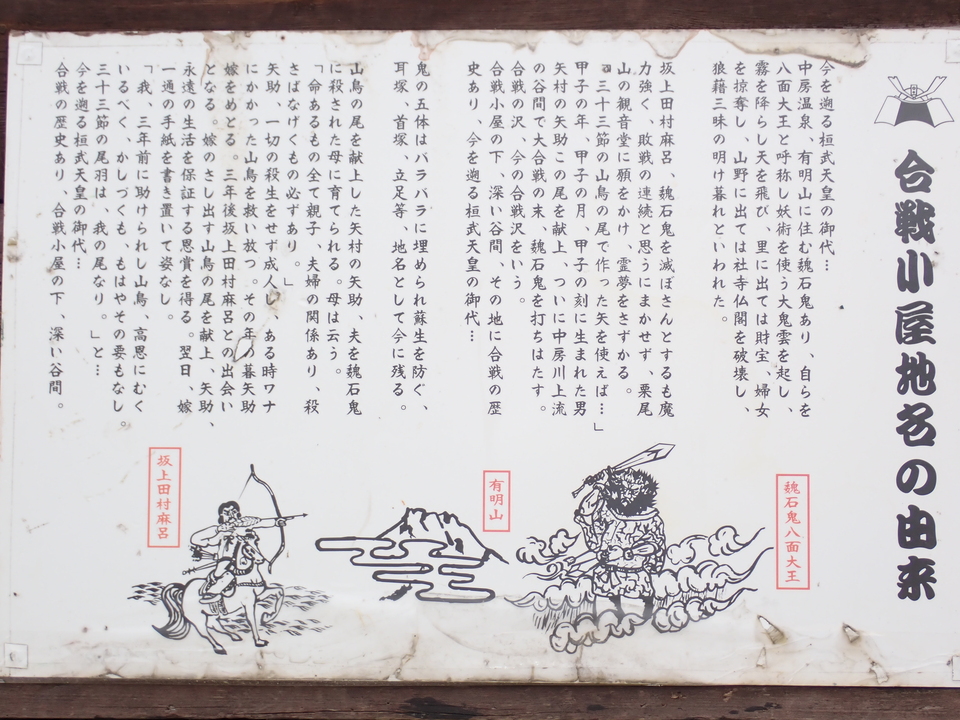 合戦小屋地名の由来
今を遡る桓武天皇の御代…
中房温泉、有明山に住む魏石鬼あり、自らを
八面大王と呼称し妖術を使う大鬼雲を起し、
霧を降らし天を飛び、里に出ては財宝、婦女
を掠奪し、山野に出ては社寺仏閣を破壊し、
狼藉三昧の明け暮れといわれた。
坂上田村麻呂、魏石鬼を滅ぼさんとするも魔
力強く、敗戦の連続と思うにまかせず、栗尾
山の観音堂に願をかけ、霊夢をさずかる。
「三十三節の山鳥の尾で作った矢を使えば…」
甲子の年、甲子の月、甲子の刻に生まれた男
矢村の矢助この尾を献上、ついに中房川上流
の谷間で大合戦の末、魏石鬼を打ちはたす。
合戦の沢、今の合戦沢をいう。
合戦小屋の下、深い谷間、その地に合戦の歴
史あり、今を遡る桓武天皇の御代…
鬼の五体はバラバラに埋められ蘇生を防ぐ、
耳塚、首塚、立足等、地名として今に残る。
山鳥の尾を献上した矢村の矢助、夫を魏石鬼
に殺された母に育てられる。母は云う。
「命あるもの全て親子、夫婦の関係あり、殺
さばなげくもの必ずあり。」
矢助、一切の殺生をせず成人し、ある時ワナ
にかかった山鳥を救い放つ。その年の暮矢助
嫁をめとる。三年後坂上田村麻呂との出会い
となる。嫁のさし出す山鳥の尾を献上、矢助、
永遠の生活を保証する恩賞を得る。翌日、嫁
一通の手紙を書き置いて姿なし。
「我、三年前に助けられし山鳥、高恩にむく
いるべく、かしづくも、もはやその要もなし。
三十三節の尾羽は、我の尾なり。」と…
今を遡る桓武天皇の御代…
合戦の歴史あり、合戦小屋の下、深い谷間。
魏石鬼八面大王
有明山
坂上田村麻呂